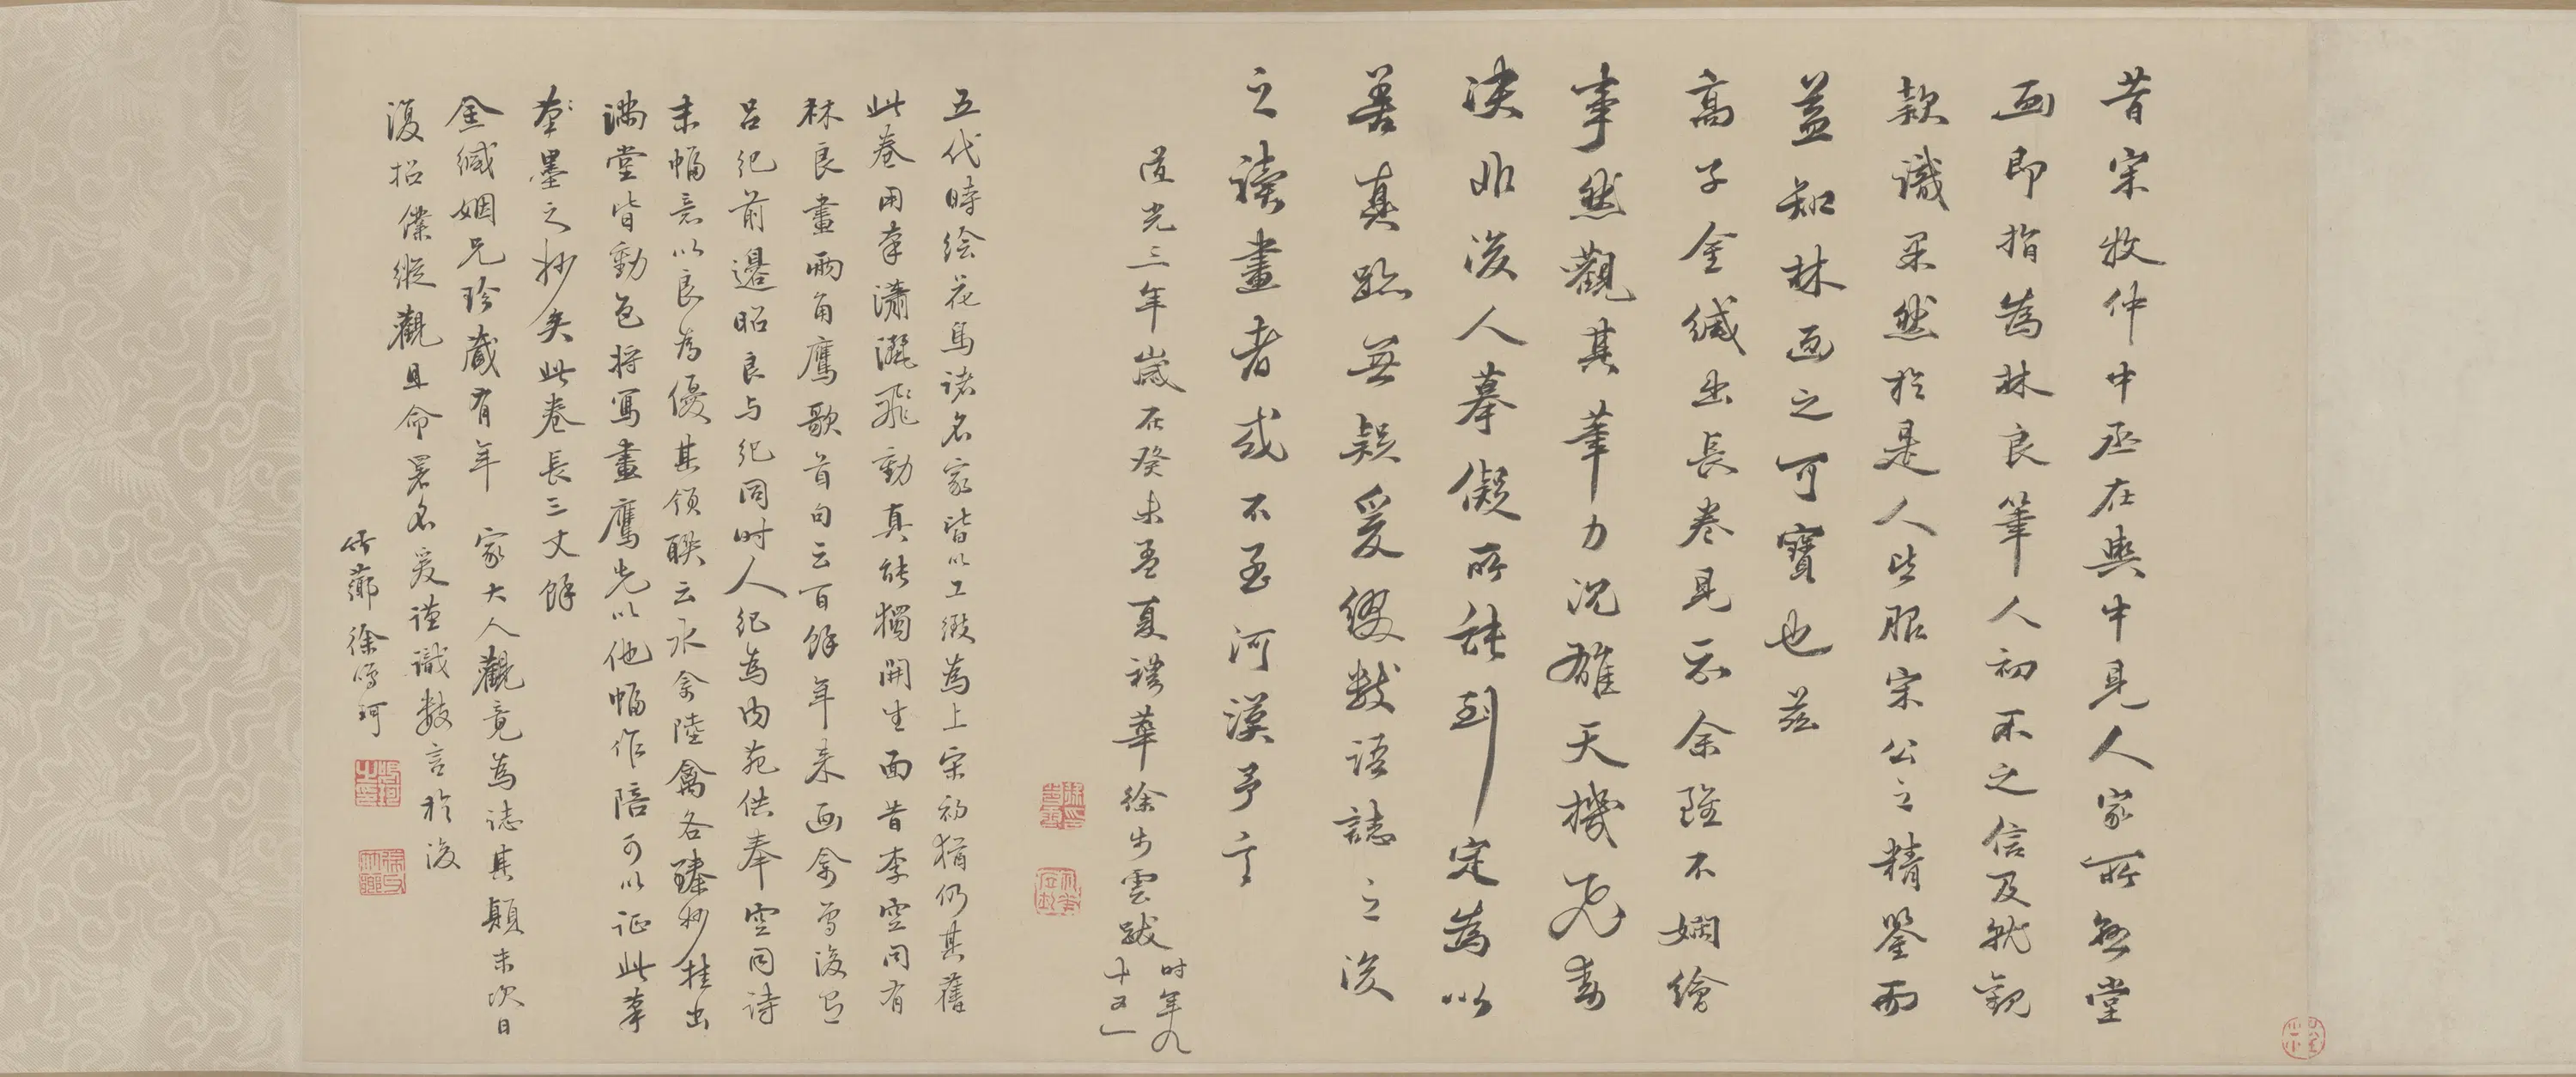 昔宋牧仲中丞在輿中見人家所懸堂
画即指為林良筆人初不之信及就觀
款識果然於是人皆服宋公之精鑒而
益知林画之可寶也茲
高子金緘出長卷見示余雖不嫻繪
事然觀其筆力沉雄天機飛動
決非後人摹儗所能到定為以
善真跡無疑爰綴數語誌之後
之讀畫者或不至河漢予言
道光三年歲在癸未孟夏禮華徐步雲跋
時年九
十又一
五代時绘花鳥諸名家皆以工緻為上宋初猶仍其舊
此卷用筆瀟灑飛動真能獨開生面昔李空同有
林良畫兩角鷹歌首句云百餘年来画禽鳥後有
呂紀前邊昭良与紀同时人紀為内苑供奉空同詩
末幅意以良為優其領聯云水禽陸禽各臻妙挂出
滿堂皆動色将寫畫鷹先以他幅作陪可以证此筆
筆墨之妙矣此卷長三丈餘
金緘姻兄珍藏有年 家大人觀竟為誌其顛末次日
復招僕縱觀且命署名爰謹識數言於後
竹薌徐鳴珂